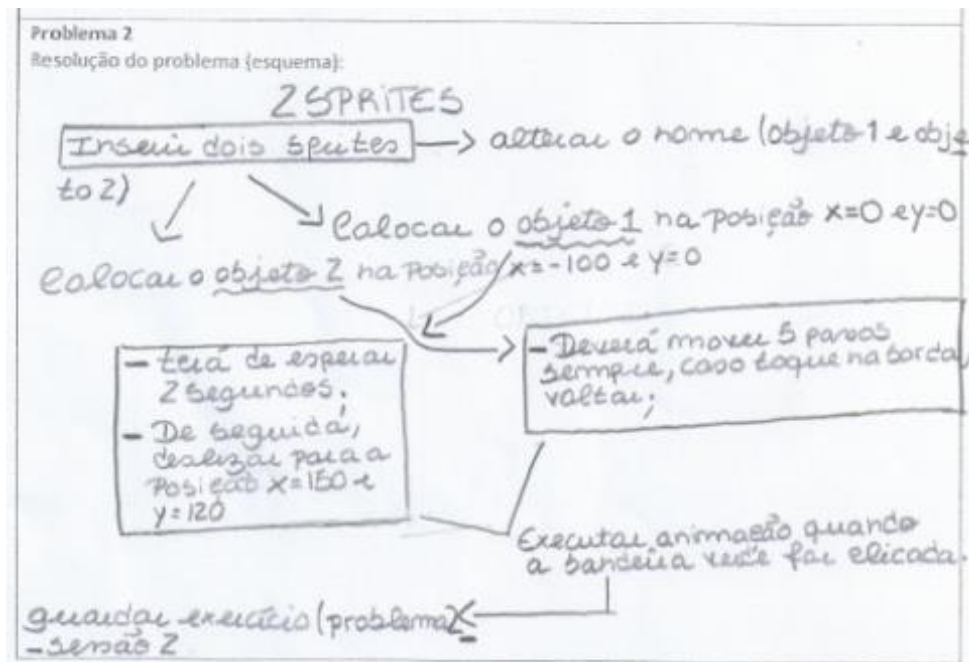 Problema 2
Resolução do problema (esquema):
2 SPRITES
Inserir dois sprites → alterar o nome (objeto 1 e obje
to 2)
Colocar o objeto 1 na posição x=0 e y=0
Colocar o objeto 2 na posição x=-100 e y=0
- terá de esperar
2 segundos;
- De seguida,
deslizar para a
posição x=150 e
y=120
- Deverá mover 5 passos
sempre, caso toque na borda,
voltar;
Executar animação quando
a bandeira verde for clicada.
guardar exercício (problema 2
- sessão 2